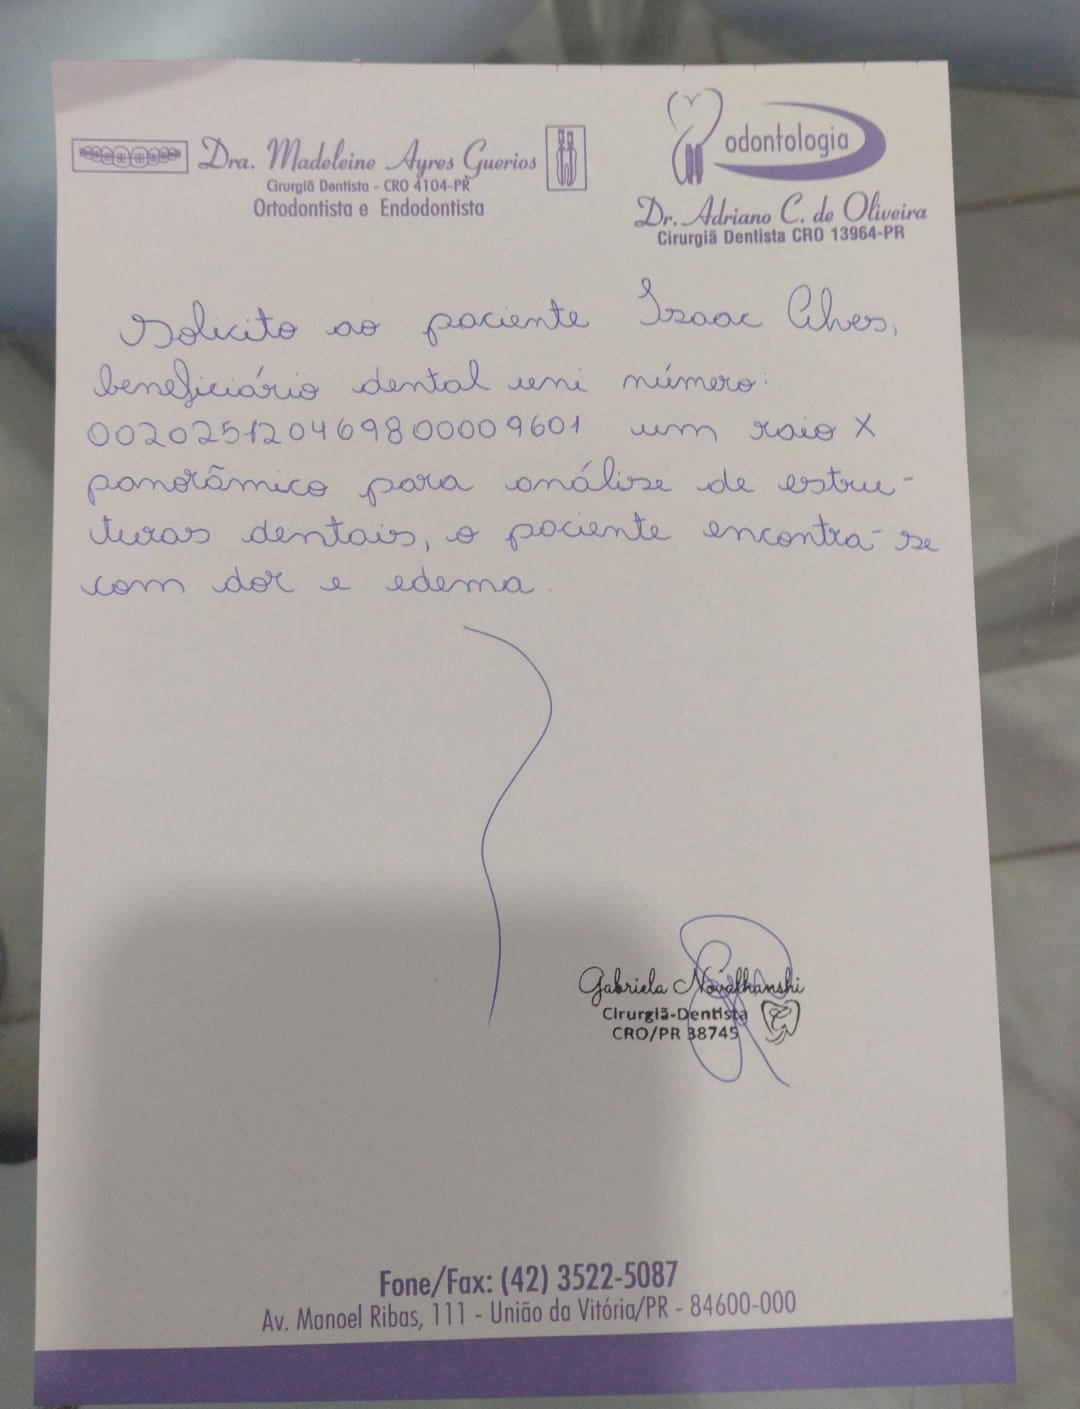 Dra. Madeleine Ayres Guerios
Cirurgiã Dentista - CRO 4104-PR
Ortodontista e Endodontista
odontologia
Dr. Adriano C. de Oliveira
Cirurgiã Dentista CRO 13964-PR
Solicito ao paciente Isaac Alves,
beneficiário dental uni número:
002025120469800009601 um raio X
panorâmico para análise de estru-
turas dentais, o paciente encontra-se
com dor e edema.
Gabriela Novalhanshi
Cirurgiã-Dentista
CRO/PR 38745
Fone/Fax: (42) 3522-5087
Av. Manoel Ribas, 111 - União da Vitória/PR - 84600-000